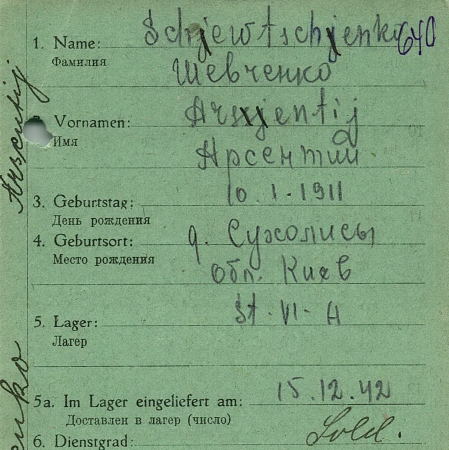 1. Name: Schjewtschjenko 640
Фамилия Шевченко
2. Vornamen: Arsjentij
Имя Арсентий.
3. Geburtstag: 10.1.1911
День рождения
4. Geburtsort: д. Сухолисы
Место рождения обл. Киев
5. Lager: St. VI-A
Лагерь
5a. Im Lager eingeliefert am: 15.12.42
Доставлен в лагерь (число)
6. Dienstgrad: Sold.
Arsentij
enko